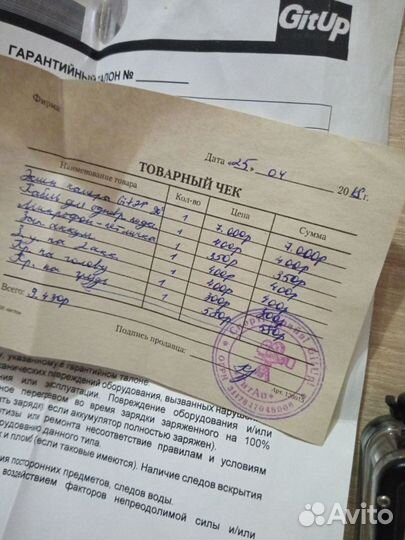 GitUp
ГАРАНТИЙНЫЙ ТАЛОН №
Фирма
Дата 25. 04 2018 г.
ТОВАРНЫЙ ЧЕК
Наименование товара Кол-во Цена Сумма
Экшн камера Git2P 90° 1 7.000р 7.000р
1 400р 400р
Микрофон-петличка 1 350р 350р
Доп. аккум. 1 400р 400р
З.у. на 2 акк. 1 400р 400р
Кр. на голову 1 300р 300р
Кр. на грудь 1 580р
Всего: 9.430р
Подпись продавца:
у, указанному в гарантийном талоне.
ханических повреждений оборудования, вызванных наруш
ния или эксплуатации. Повреждение оборудования и/или
ное перегревом во время зарядки заряженного на 100%
ть зарядку если аккумулятор полностью заряжен).
тизы или ремонта несоответствие правилам и условиям
орудованию данного типа.
к и пломб (если таковые имеются). Наличие следов вскрытия
ия посторонних предметов, следов воды.
воздействием факторов непреодолимой силы и/или
Avito